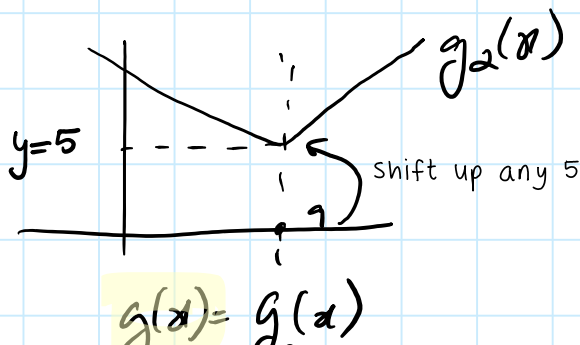 g₂(x)
y=5
shift up any 5
9
g(x)= g(x)